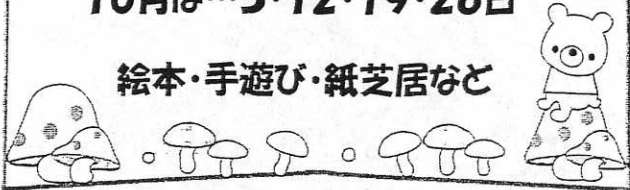 10月は…5・12・19・26日
絵本・手遊び・紙芝居など